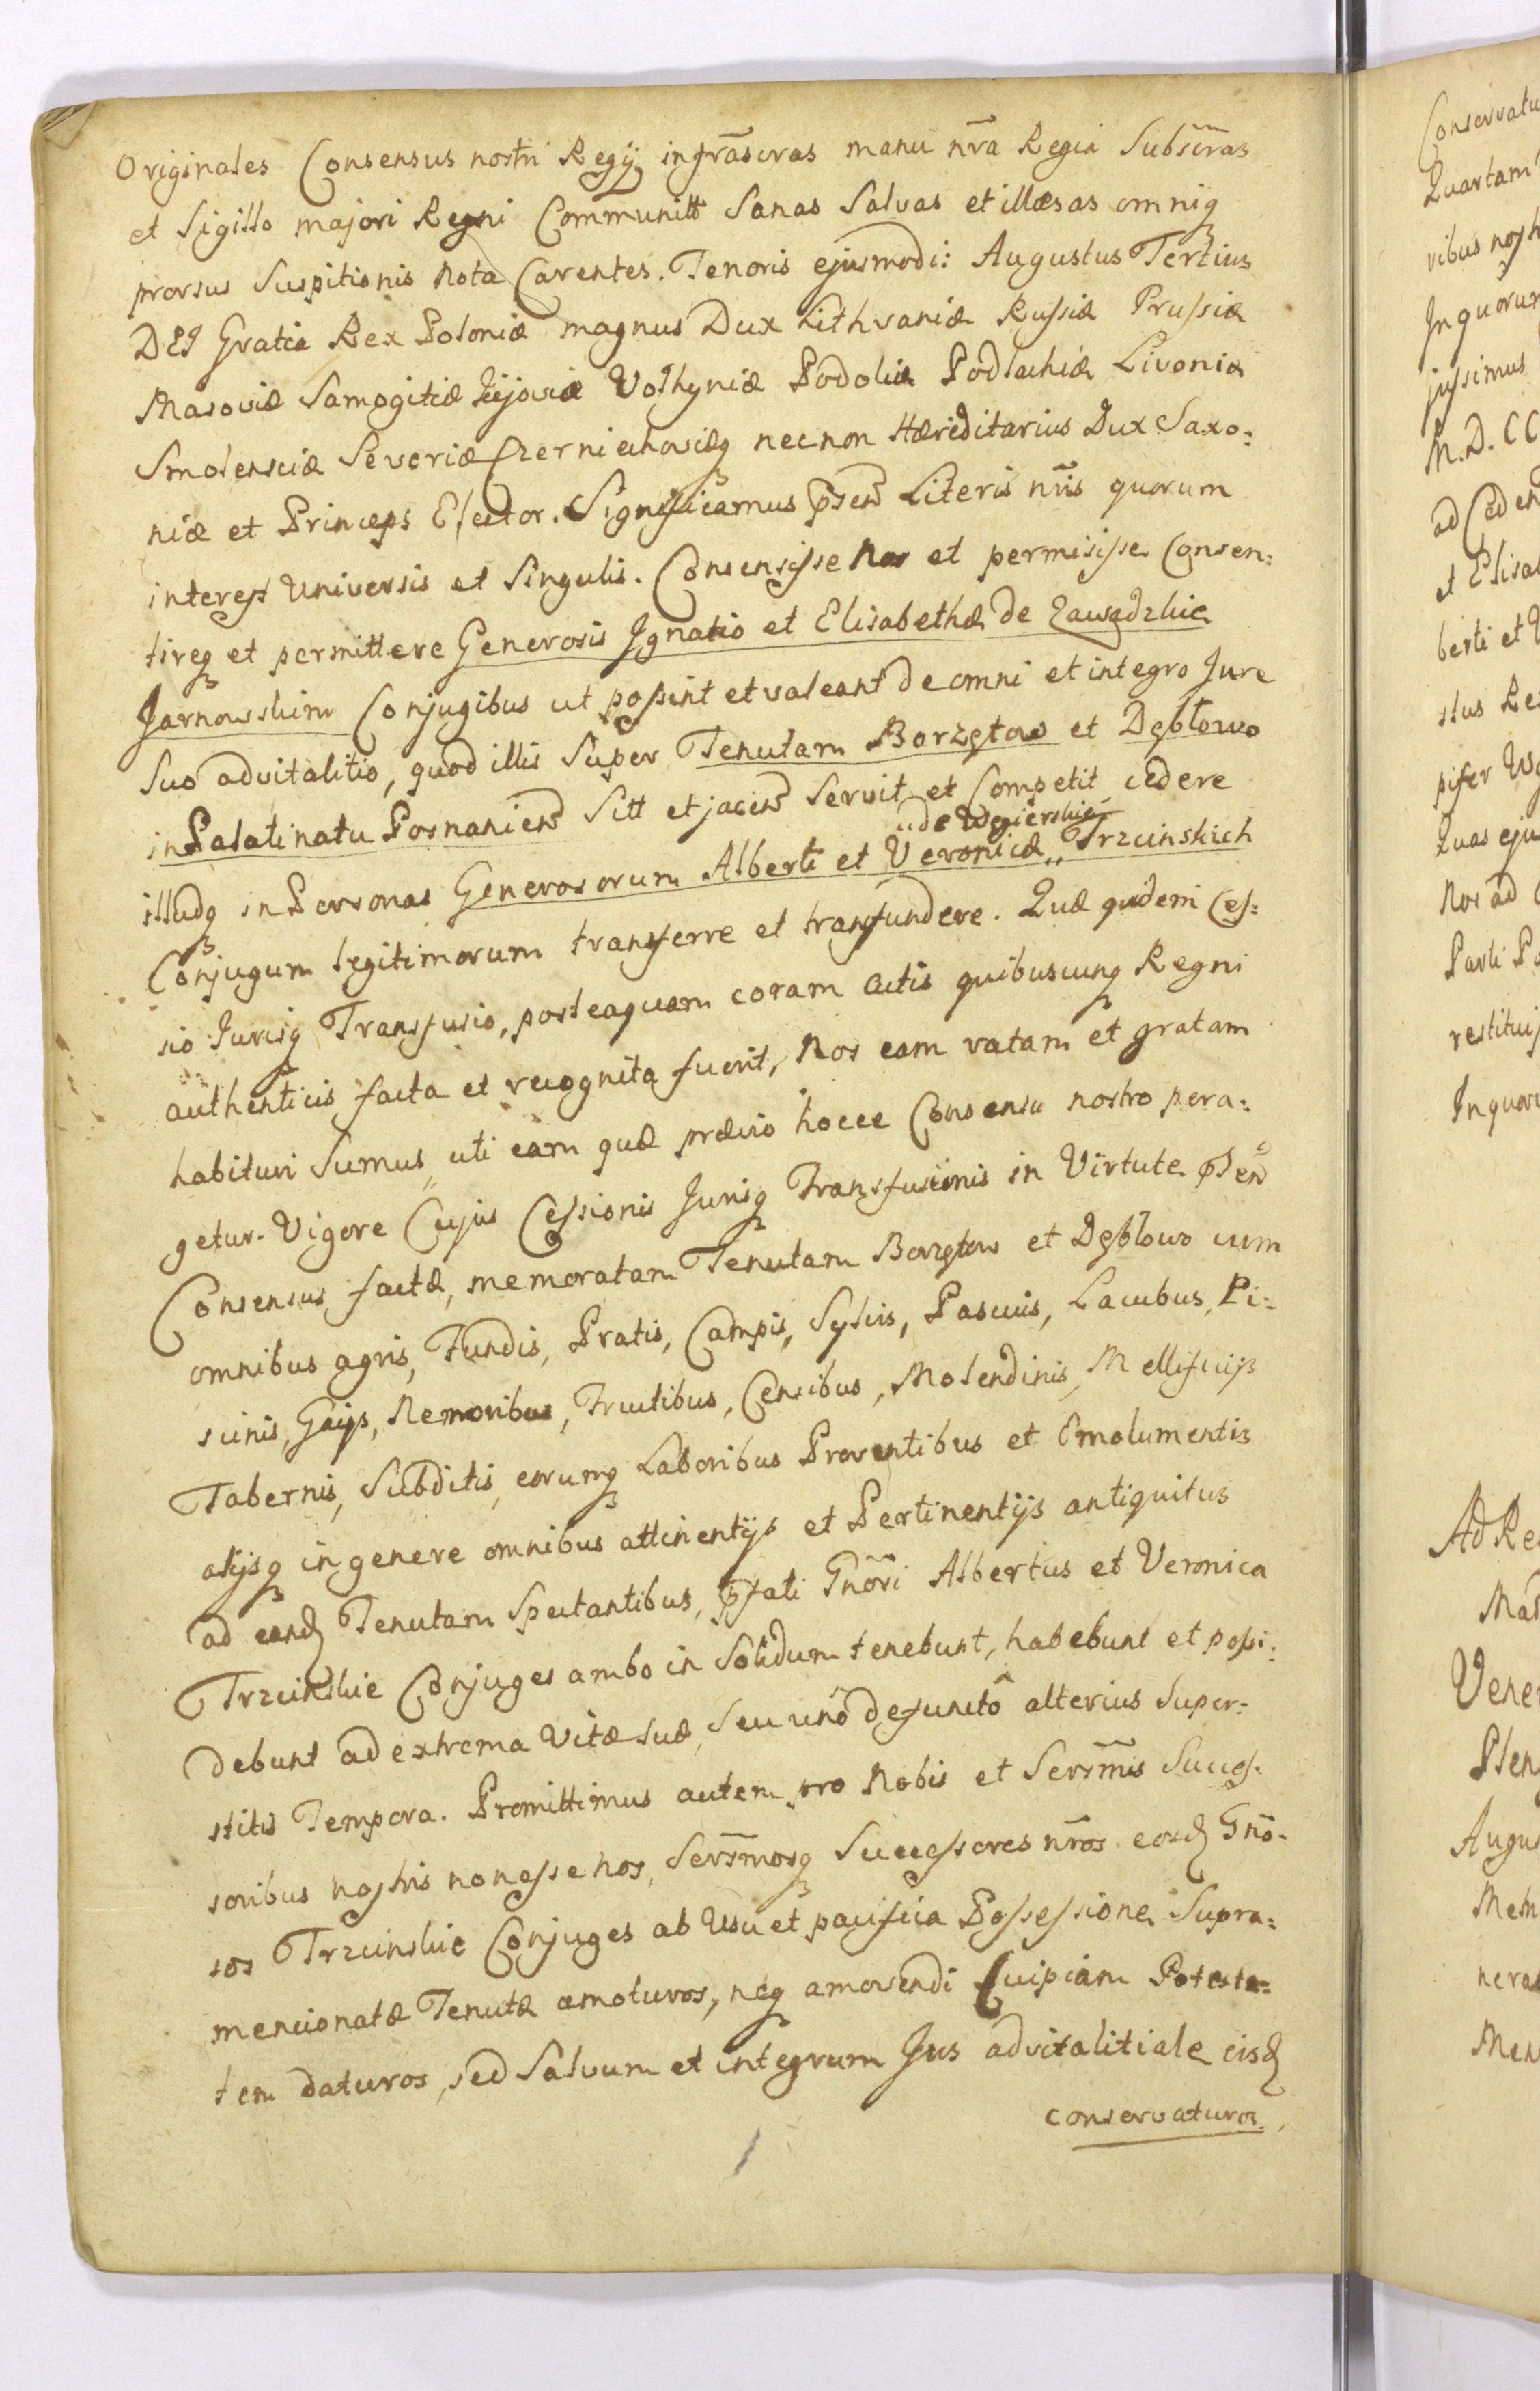 Originales Consensus nostri Regij infrãscras manu nr̃a Regia Subscr̃as
et Sigillo majori Regni Communitt Sanas Salvas et illæsas omniq
prorsus Suspitionis Nota Carentes. Tenoris ejusmodi: Augustus Tertius
DEI Gratia Rex Poloniæ magnus Dux Lithvaniæ Russiæ Prussiæ
Masoviæ Samogitiæ Kijoviæ Volhyniæ Podoliæ Podlachiæ Livoniæ
Smolensciæ Severiæ Czerniechoviæq necnon Hæreditarius Dux Saxo:
niæ et Princeps Elector. Significamus p̃sen Literis nr̃is quorum
interest Universis et Singulis. Consensisse Nos et permisisse Consen:
tireq et permittere Generosis Ignatio et Elisabethæ de Zawadzkie
Jarnowskim Conjugibus ut possint et valeant de omni et integro Jure
Suo advitalitio, quod illis Super Tenutam Borzętow et Dębłowo
in Palatinatu Posnanien Sitt et jacen Servit et Competit cedere
illudq in Personas Generosorum Alberti et Veronicæ „ Trzcinskich
„ de Węgierskie
Conjugum legitimorum transferre et transfundere. Quæ quidem Ces:
sio Jurisq Transfusio, posteaquam coram Actis quibuscunq Regni
authenticis facta et recognita fuerit, Nos eam ratam et gratam
habituri Sumus „ uti eam quæ prævio hocce Consensu nostro pera:
getur. Vigore Cujus Cessionis Jurisq Transfusionis in Virtute p̃sen
Consensus factæ, memoratam Tenutam Borzętow et Dębłowo cum
omnibus agris, Fundis, Pratis, Campis, Sylvis, Pascuis, Lacubus, Pi:
scinis, Gaijs, Nemoribus, Fructibus, Censibus, Molendinis, Mellificijs
Tabernis, Subditis, eorumq Laboribus Proventibus et Emolumentis
alijsq in genere omnibus attinentijs et Pertinentijs antiquitus
ad eand Tenutam Spectantibus, p̃fati Gnõri Albertus et Veronica
Trzcinskie Conjuges ambo in Solidum tenebunt, habebunt et possi:
debunt ad extrema Vitæ Suæ, Seu unô defunctô alterius Super:
stitis Tempora. Promittimus autem pro Nobis et Serr̃mis Succes:
soribus nostris non esse nos, Serr̃mosq Successores nr̃os eosd Gnõ:
sos Trzcinskie Conjuges ab Usu et pacifica Possessione Supra:
mencionatæ Tenutæ amoturos, neq amovendi Cuipiam Potesta:
tem daturos, sed Salvum et integrum Jus advitalitiale eisd
conservaturos.
Conservatu
Quartam
ribus nost
In quorum
jussimus
M. D. CC
ad Ceden
et Elisab
berti et V
stus Re
pifer
Quas eju
Nos ad
Parti P
restitui
In quoru
Ad Re
Mad
Vene
Plen
Augu
Mem
nera
Men